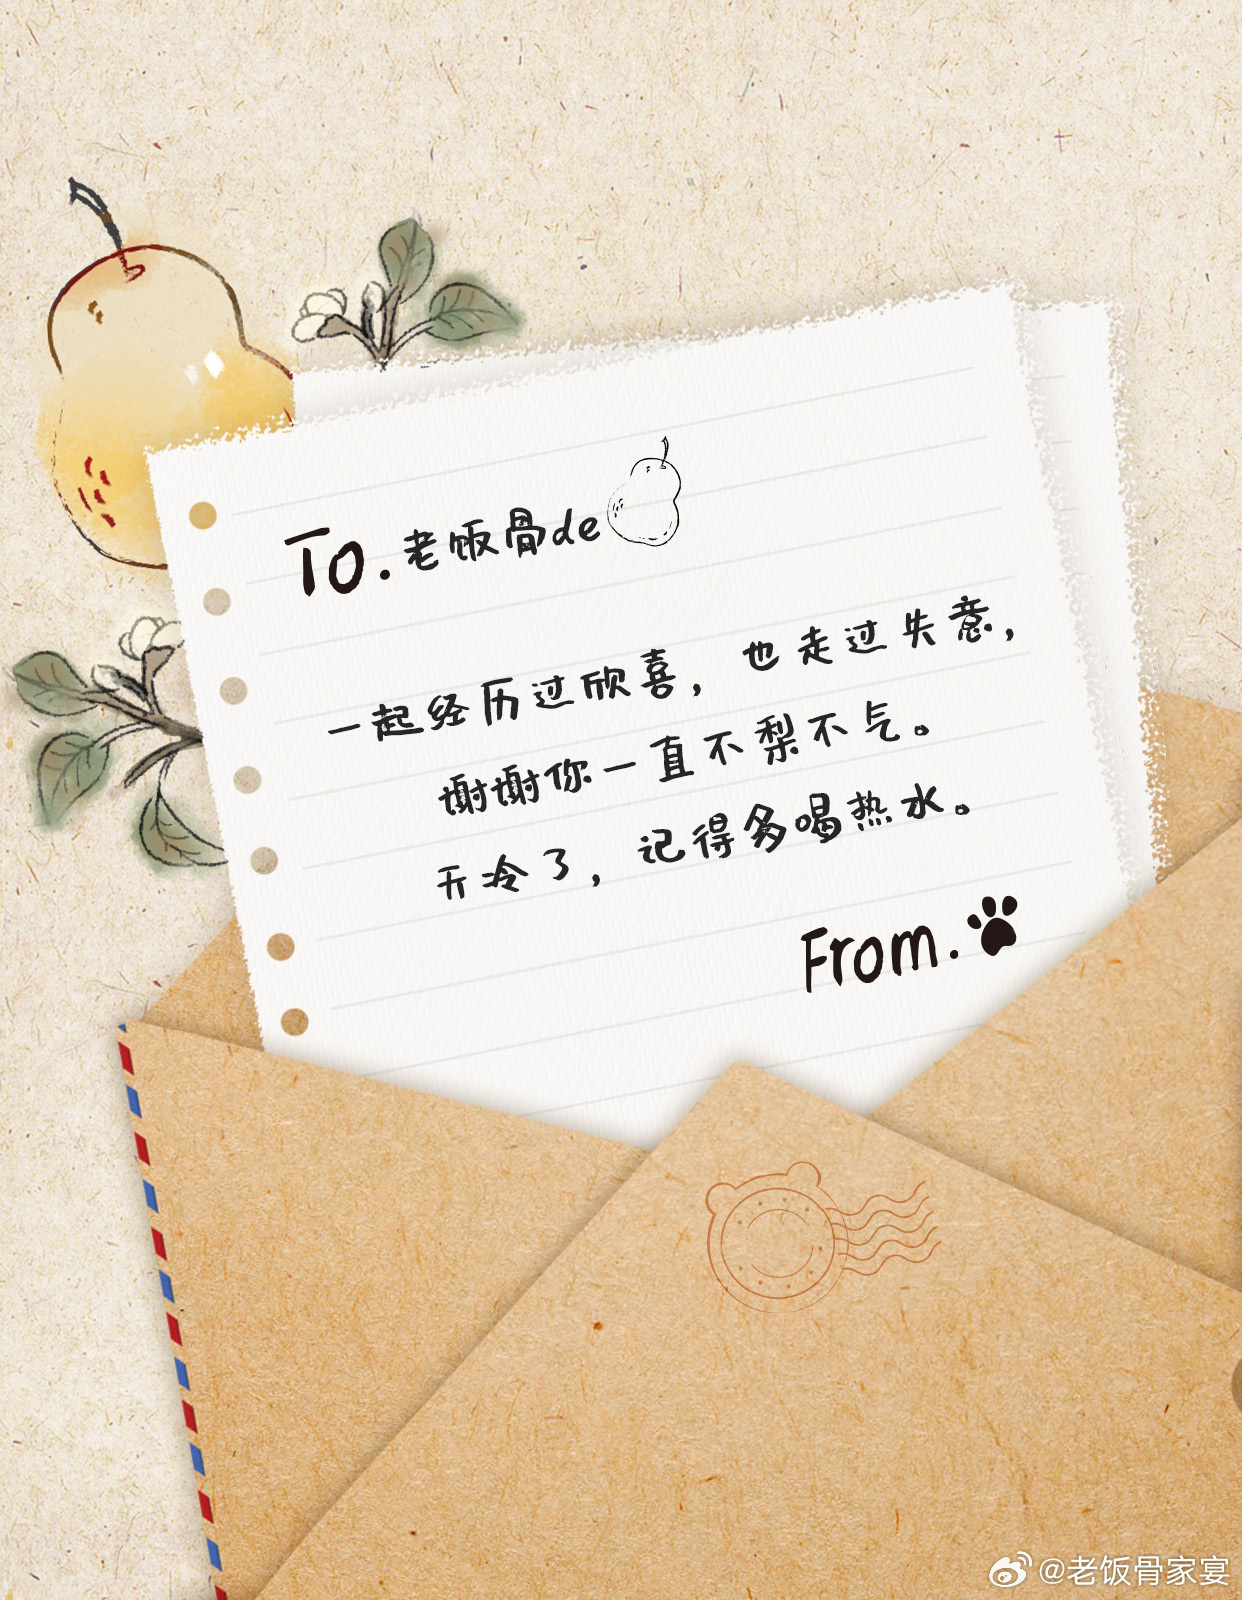 To.老饭骨de
一起经历过欣喜，也走过失意，
谢谢你一直不梨不气。
天冷了，记得多喝热水。
From.
@老饭骨家宴